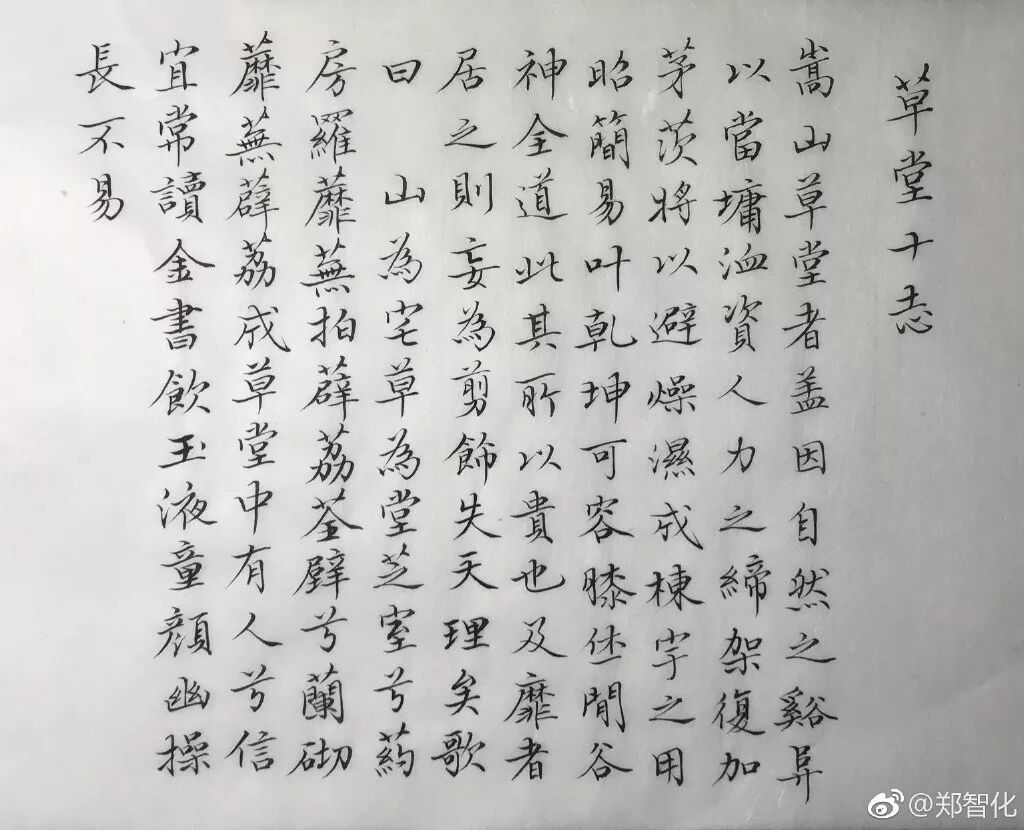 草堂十志
嵩山草堂者盖因自然之谿阜
以當墉洫資人力之締架復加
茅茨將以避燥濕成棟宇之用
昭簡易叶乾坤可容膝休閒谷
神全道此其所以貴也及靡者
居之則妄為剪飾失天理矣歌
曰 山為宅草為堂芝室兮葯
房羅蘼蕪拍薜荔荃壁兮蘭砌
蘼蕪薜荔成草堂中有人兮信
宜常讀金書飲玉液童顏幽操
長不易
@郑智化